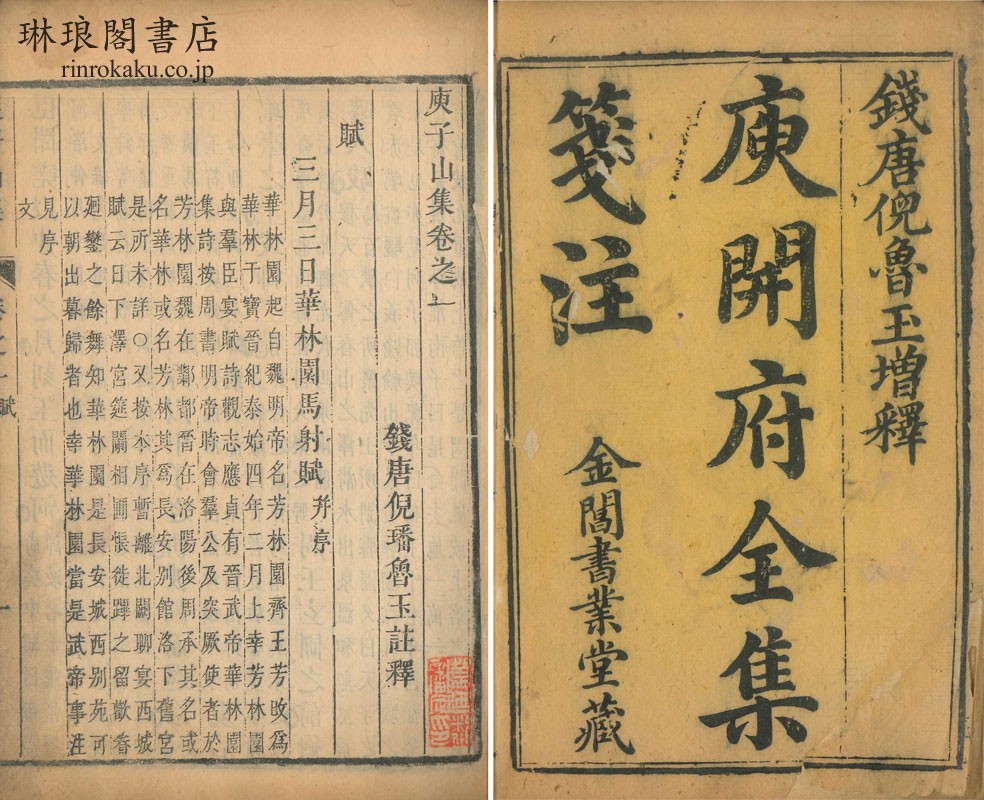 琳琅閣書店
rinrokaku.co.jp
錢唐倪魯玉增釋
庾開府全集
箋注
金閶書業堂藏
庾子山集卷之一
錢唐倪璠魯玉註釋
賦
三月三日華林園馬射賦并序
華林園起自魏明帝名芳林園齊王芳改爲
華林干寶晉紀泰始四年二月上幸芳林園
與羣臣宴賦詩觀志應貞有晉武帝華林園
集詩按周書明帝時會羣公及突厥使者於
芳林園魏在鄴都晉在洛陽後周承其名或
名華林或名芳林其爲長安別館洛下舊宮
是所未詳○又按本序暫離北闕聊宴西城
賦云日下澤宮筵闕相圃悵徙蹕之留歡眷
廻鑾之餘舞知華林園是長安城西別苑可
以朝出暮歸者也幸華林園當是武帝事注
見序
文